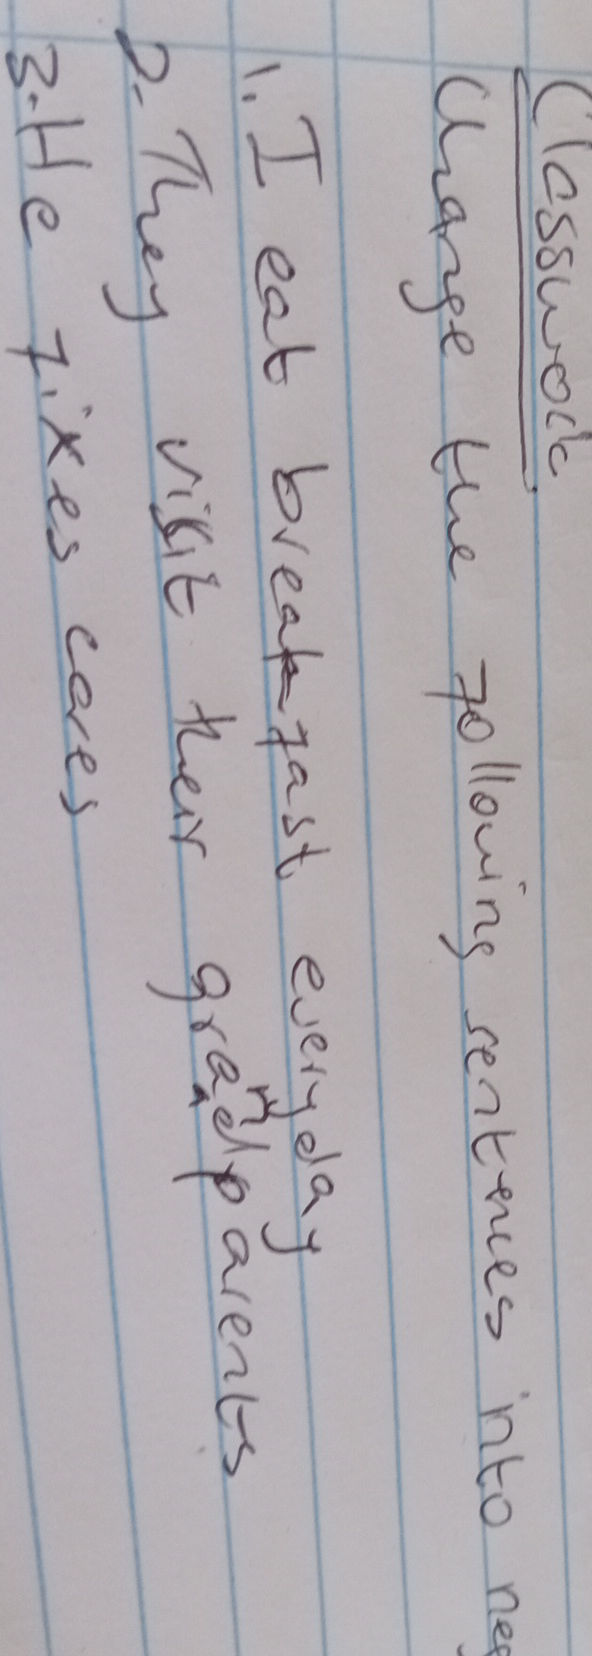 Classwork
Change the following sentences into neg
1. I eat breakfast everyday
2. They visit their grandparents
3. He fixes cares